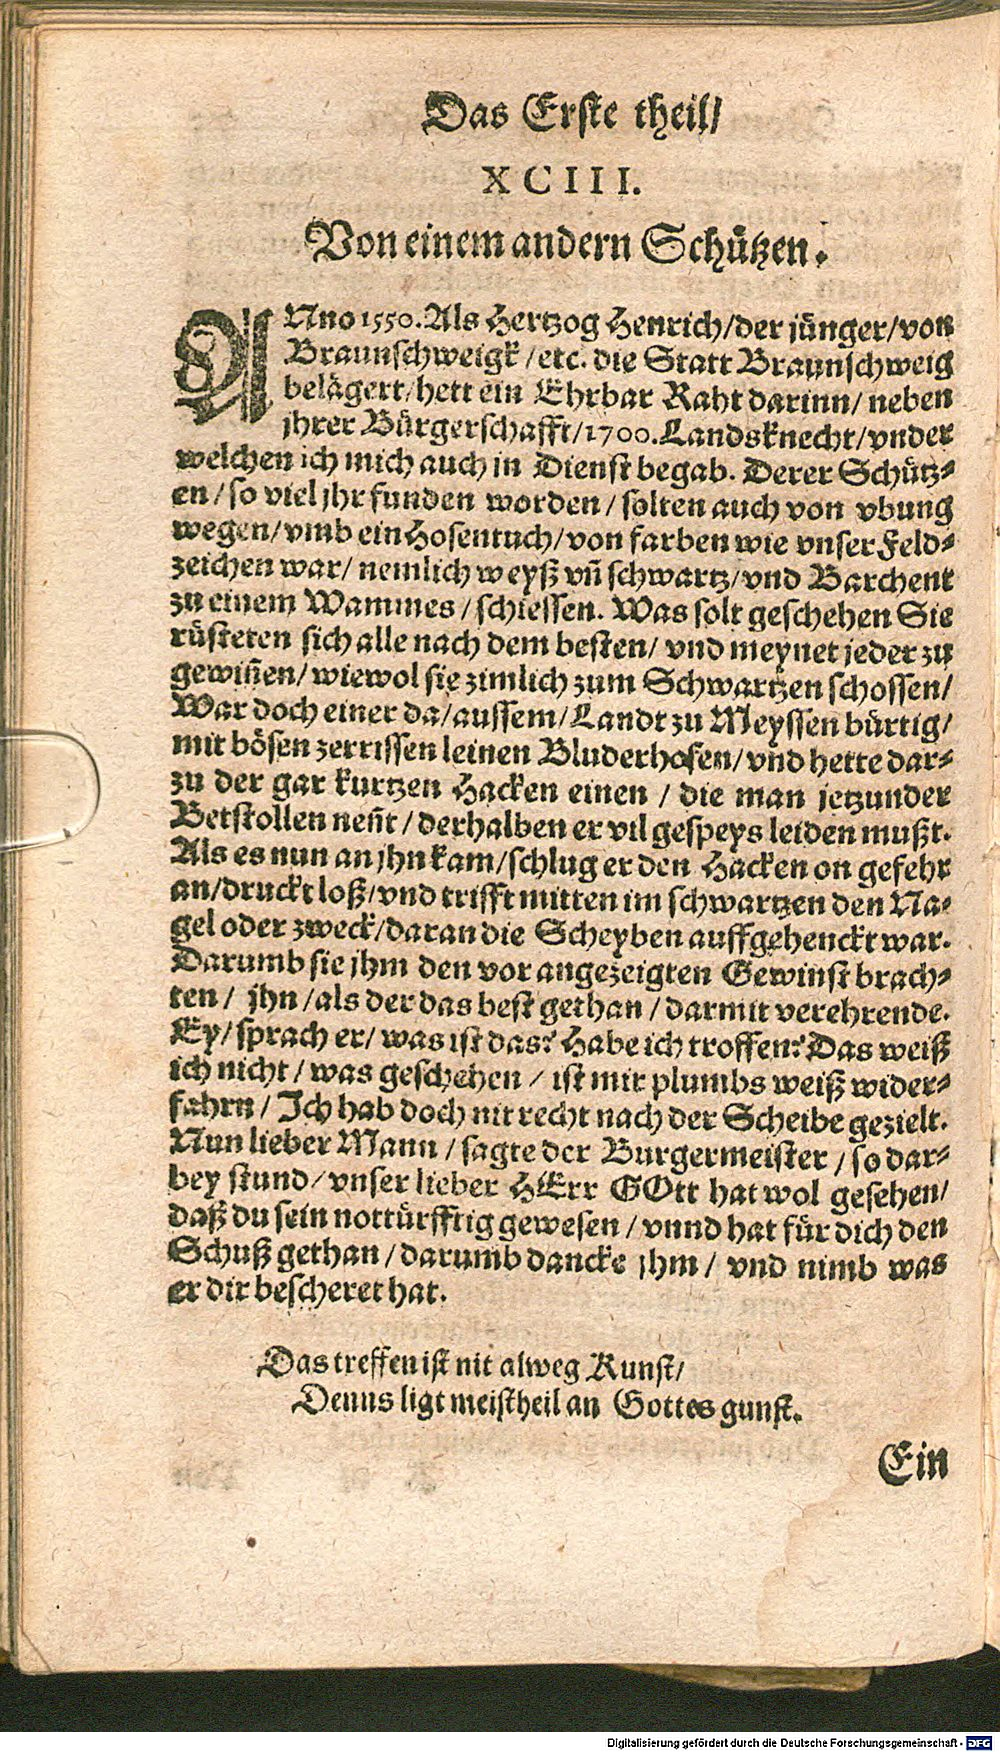 Das Erste theil/
XCIII.
Von einem andern Schützen.
ANno 1550. Als Hertzog Henrich/der jünger/von
Braunschweigk/etc. die Statt Braunschweig
belägert/hett ein Ehrbar Raht darinn/ neben
jhrer Bürgerschafft/1700. Landsknecht/vnder
welchen ich mich auch in Dienst begab. Derer Schütz⸗
en/so viel jhr funden worden/solten auch von vbung
wegen/vmb ein Hosentuch/von farben wie vnser Feld⸗
zeichen war/ nemlich weyß vñ schwartz/vnd Barchent
zu einem Wammes/schiessen. Was solt geschehen Sie
rüsteten sich alle nach dem besten/ vnd meynet jeder zu
gewiñen/wiewol sie zimlich zum Schwartzen schossen/
War doch einer da/aussem/Landt zu Meyssen bürtig/
mit bösen zerrissen leinen Bluderhosen/vnd hette dar⸗
zu der gar kurtzen Hacken einen / die man jetzunder
Betstollen neñt/derhalben er vil gespeys leiden mußt.
Als es nun an jhn kam/schlug er den Hacken on gefehr
an/druckt loß/vnd trifft mitten im schwartzen den Na⸗
gel oder zweck/daran die Scheyben auffgehenckt war.
Darumb sie jhm den vor angezeigten Gewinst brach⸗
ten/ jhn/als der das best gethan/darmit verehrende.
Ey/sprach er/was ist das? Habe ich troffen? Das weiß
ich nicht/was geschehen / ist mir plumbs weiß wider⸗
fahrn/Ich hab doch nit recht nach der Scheibe gezielt.
Nun lieber Mann/sagte der Burgermeister/so dar⸗
bey stund/vnser lieber HErr GOtt hat wol gesehen/
daß du sein nottürfftig gewesen/vnnd hat für dich den
Schuß gethan/darumb dancke jhm/ vnd nimb was
er dir bescheret hat.
Das treffen ist nit alweg Kunst/
Denns ligt meistheil an Gottes gunst.
Ein
Digitalisierung gefördert durch die Deutsche Forschungsgemeinschaft - DFG